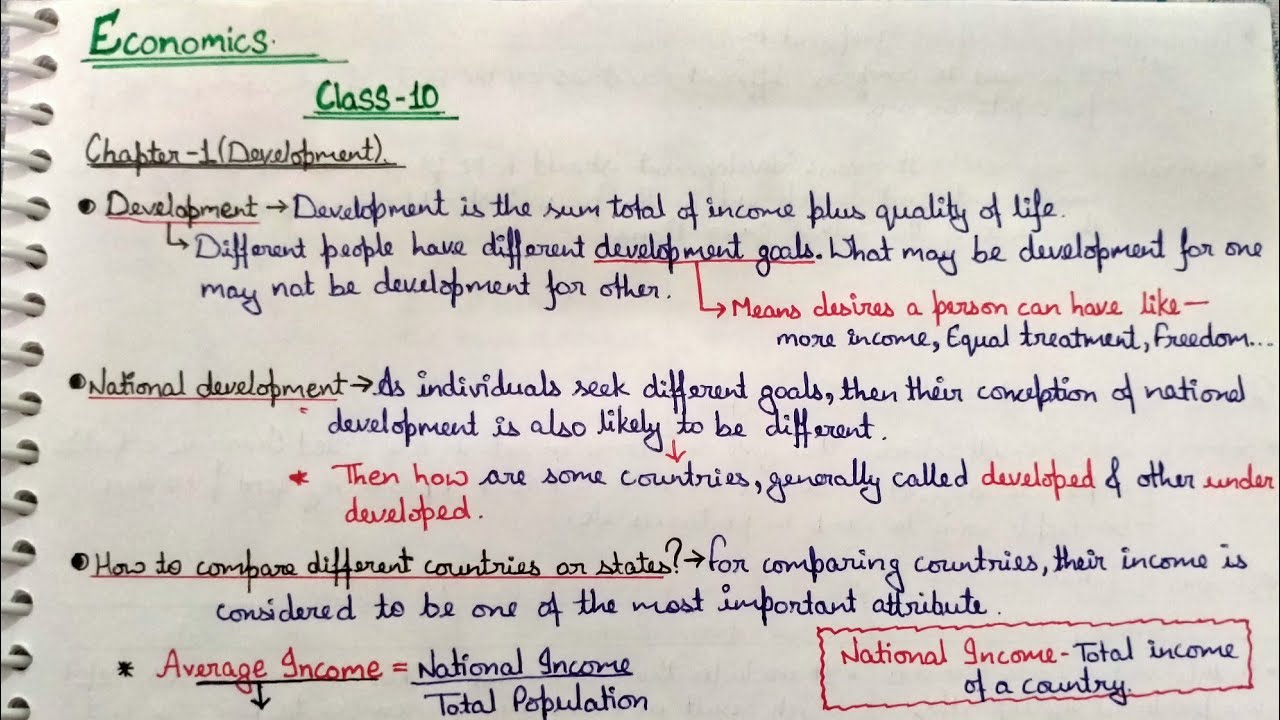 Economics.
Class-10
Chapter-1(Development).
• Development → Development is the sum total of income plus quality of life.
↳ Different people have different development goals. What may be development for one
may not be development for other.
↳ Means desires a person can have like—
more income, Equal treatment, Freedom...
• National development → As individuals seek different goals, then their conception of national
development is also likely to be different.
* Then how are some countries, generally called developed & other under
developed.
• How to compare different countries or states? → for comparing countries, their income is
considered to be one of the most important attribute.
* Average Income = National Income
Total Population
National Income - Total income
of a country.